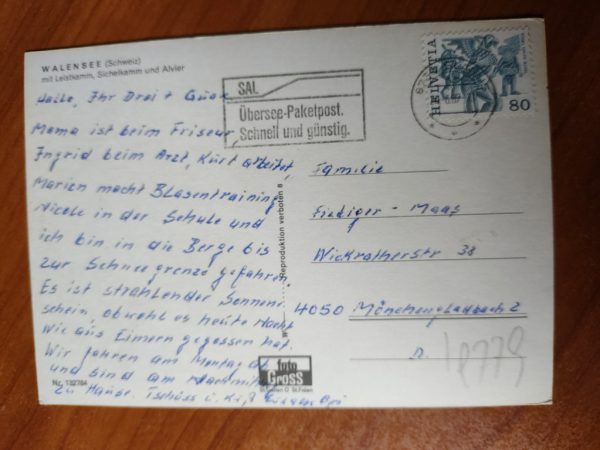 WALENSEE (Schweiz)
mit Leistkamm, Sichelkamm und Alvier
Hallo, Ihr Drei +
Mama ist beim Friseur,
Ingrid beim Arzt, Kurt arbeitet,
Marion macht Blasentraining,
Nicole in der Schule und
ich bin in die Berge bis
zur Schneegrenze gefahren.
Es ist strahlender Sonnen-
schein, obwohl es heute Nacht
wie aus Eimern gegossen hat.
Wir fahren am Montag ab
und sind am
zu Hause. Tschüss u. Kuß
Nr. 13278A
SAL
Übersee-Paketpost.
Schnell und günstig.
HELVETIA
80
Reproduktion verboten
Familie
Fiediger - Maas
Wickratherstr 38
4050 Mönchengladbach 2
foto
Gross
St. Gallen
18779